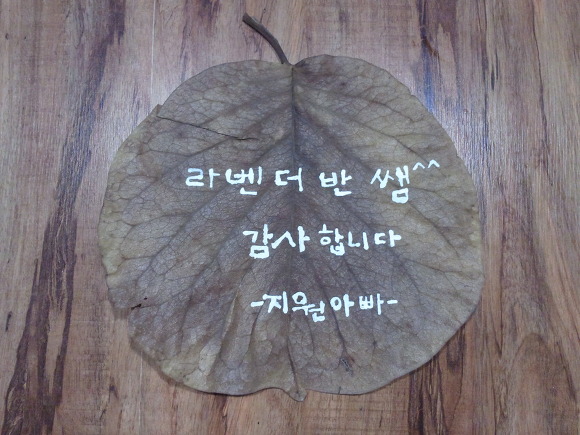 라벤더 반 쌤^^
감사합니다
-지원아빠-